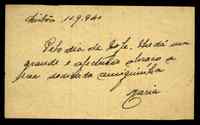 Lisboa 11.9.940
Pelo dia de hoje. lhe dá um
grande e afectuoso abraço a
sua dedicada amiguinha
Maria